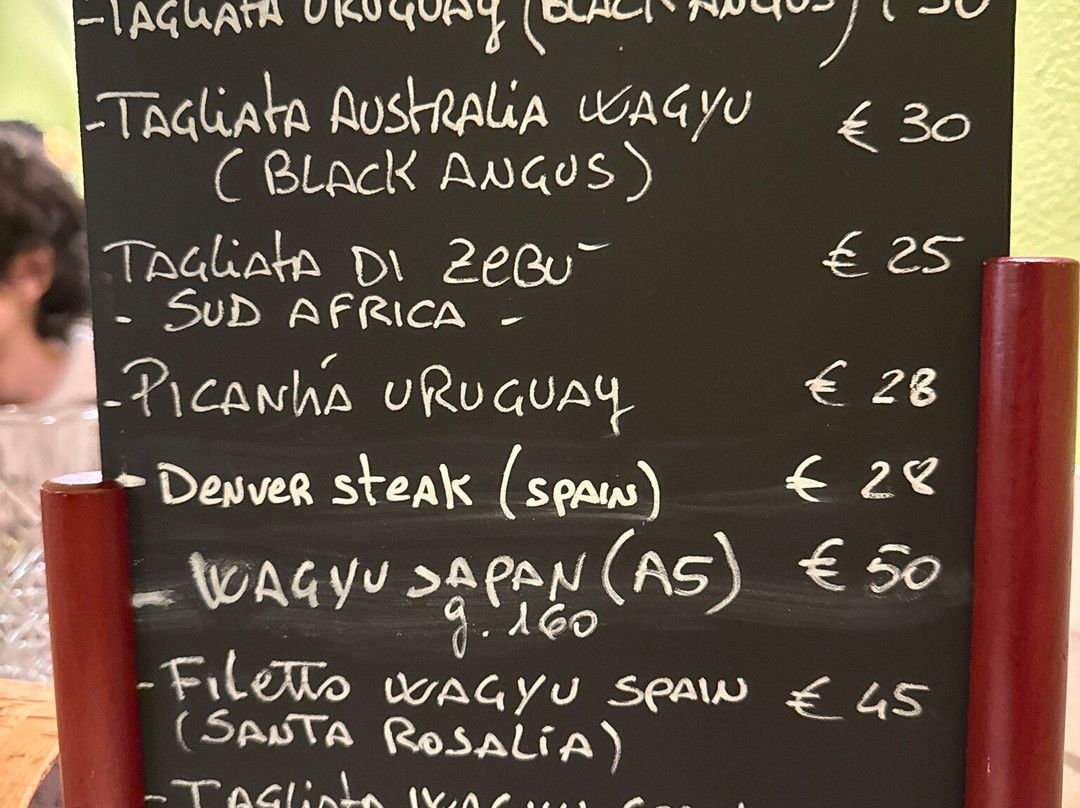 -TAGLIATA URUGUAY (BLACK ANGUS) € 30
-TAGLIATA AUSTRALIA WAGYU € 30
(BLACK ANGUS)
TAGLIATA DI ZEBÙ € 25
- SUD AFRICA -
-PICANHÁ URUGUAY € 28
- DENVER STEAK (SPAIN) € 28
- WAGYU JAPAN (A5) € 50
g. 160
-FILETTO WAGYU SPAIN € 45
(SANTA ROSALIA)
-TAGLIATA WAGYU